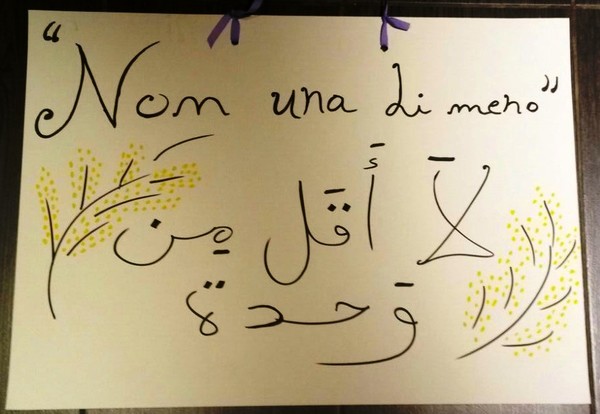 "Nom una di meno"
لَا أَقَل مِن
وَحدة